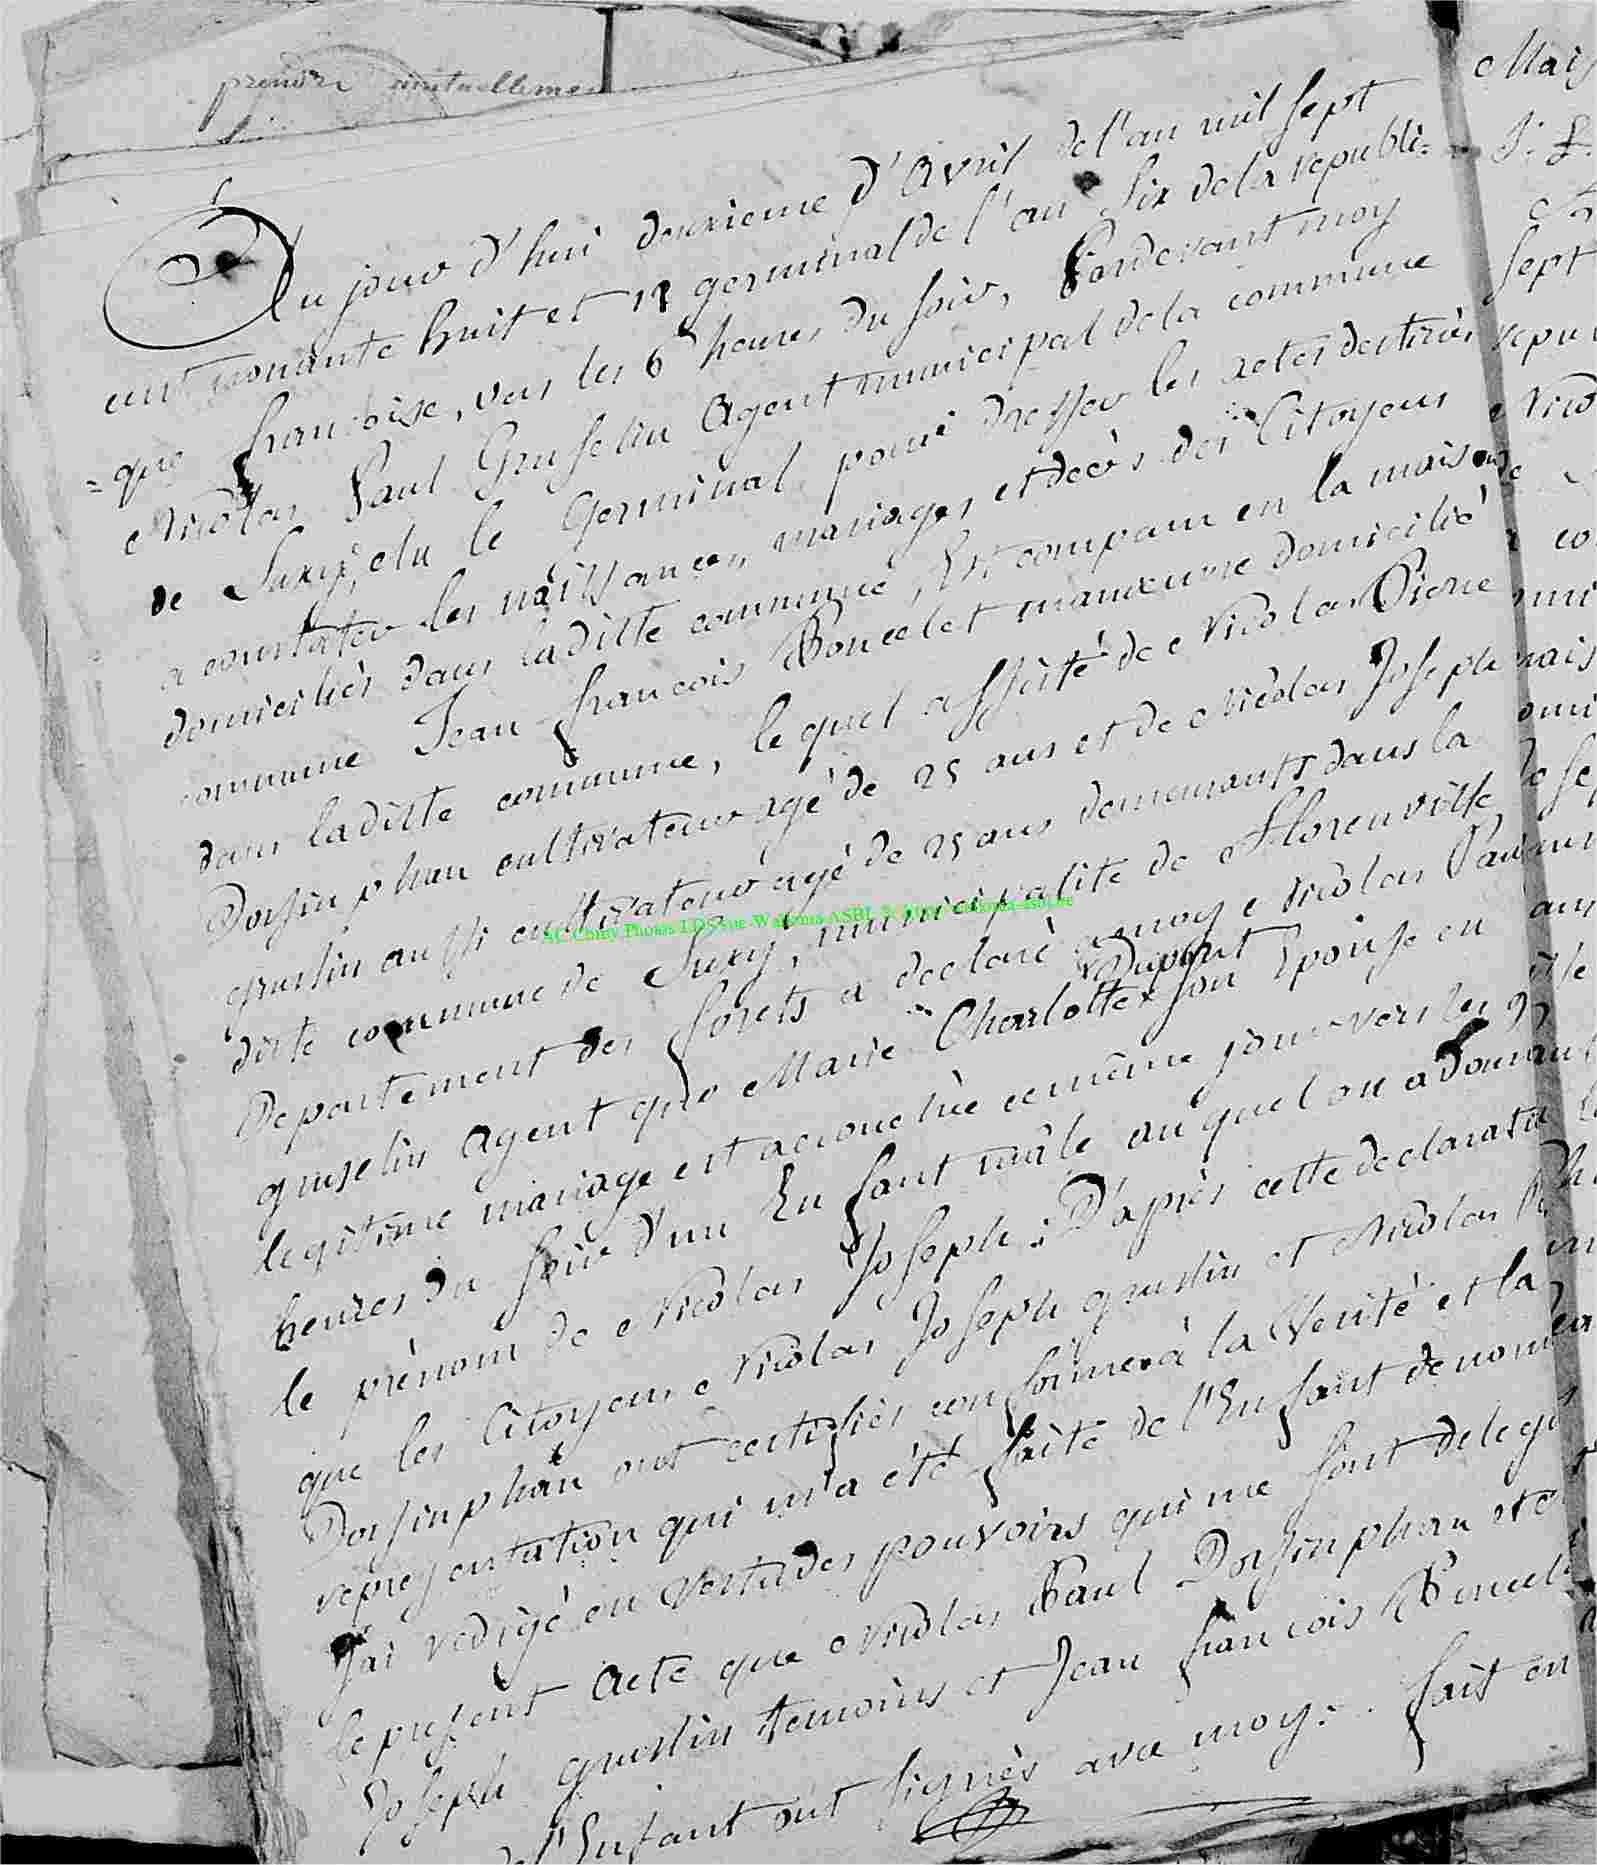 prendre mutuelleme
Au jour d'hui deuxieme d'Avril de l'an mil sept
cent nonante huit et 12 germinal de l'an six de la republi=
=que francoise, vers les 6 heures du soir, Pardevant moy
Nicolas Paul Gruselin Agent municipal de la commune
de Suxÿ, elu le Germinal pour dresser les actes destinés
a constater les naissances, mariages et decès des Citoyens
domiciliés dans laditte commune, Est comparu en la maison
commune Jean francois Poncelet manoeuvre domicilié
dans laditte commune, lequel assisté de Nicolas Piere
Dosinphan cultivateur agé de 25 ans et de Nicolas Joseph
gruslin aussi cultivateur agé de 25 ans demeurants dans la
ditte commune de Suxÿ, municipalité de Florenville
AC Chiny Photos LDS Vue Wallonia ASBL
Departement des forets a declaré a moy Nicolas Paul
gruselin Agent que Marie Charlotte Dupont son Epouse en
legitime mariage est accouchée ce même jour vers les
heures du soir d'un Enfant mâle au quel on a Donné
le prénom de Nicolas Joseph : D'après cette declaration
que les Citoyens Nicolas Joseph gruslin et Nicolas
Dosinphan ont certifiés conforme à la Verité et la
representation qui m'a été faite de l'Enfant denommé
J'ai redigé en vertu des pouvoirs qui me sont delegu
le present Acte que Nicolas Paul Dosinphan et
Joseph gruslin temoins et Jean francois Poncel
de l'Enfant ont signés avec moy : . fait en
Mais
Sept